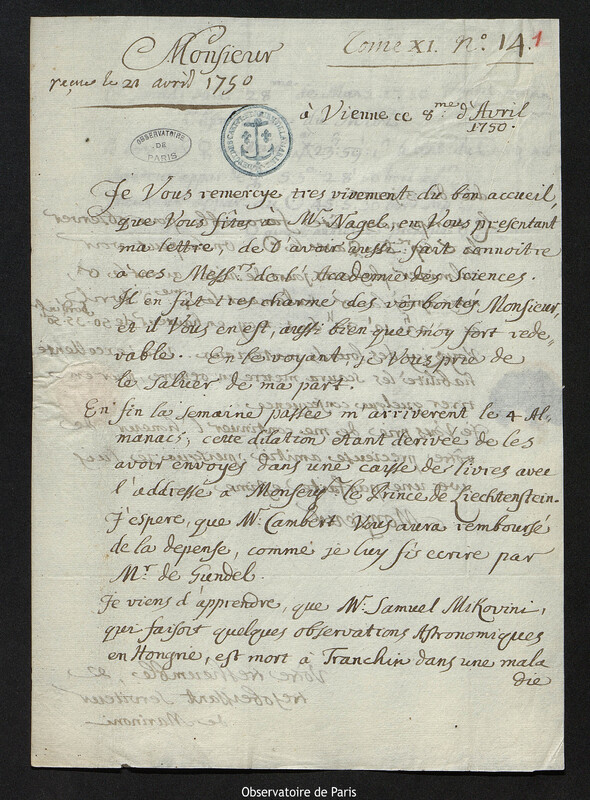 Monsieur
Tome XI. N.º 14. 1
reçue le 21 avril 1750
à Vienne ce 8.me d'Avril
1750.
OBSERVATOIRE
DE
PARIS
Je Vous remercye tres vivement du bon accueil,
que Vous fites à Mr. Nagel, en Vous presentant
ma lettre, de L'avoir aussi fait connoitre
à ces Messrs. de l'Academie des Sciences.
Il en fut tres charmé des vos bontés Monsieur,
et il Vous en est, aussi bien que moy fort rede=
vable. En le voyant, je Vous prie de
le saluer de ma part.
En fin la semaine passée m'arriverent le 4 Al-
manacs, cette dilation etant derivée de les
avoir envoyes dans une caisse de livres avec
l'addresse à Monseigr. le Prince de Liechtenstein.
J'espere, que Mr. Cambert Vous aura remboursé
de la depense, comme je luy fis ecrire par
Mr. de Gundel.
Je viens d'apprendre, que Mr. Samuel Mikovini,
qui faisoit quelques observations Astronomiques
en Hongrie, est mort à Tranchin dans une mala
die
Observatoire de Paris